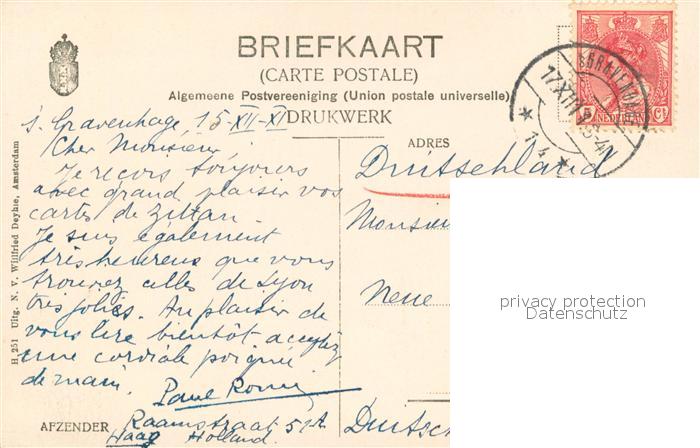 BRIEFKAART
(CARTE POSTALE)
Algemeene Postvereeniging (Union postale universelle)
DRUKWERK
ADRES
s' Gravenhage, 15-XII-XI
Cher Monsieur,
Je reçois toujours
avec grand plaisir vos
cartes de
Je suis également
très heureux que vous
trouvez celles de Lyon
très jolies. Au plaisir de
vous lire bientôt acceptez
une cordiale poignée
de main.
Paul
AFZENDER Raamstraat
Haag Holland.
Duitschland
Monsieu
Neue
Duitsc
H. 251 Uitg. N. V. Willfried Deyhle, Amsterdam
NEDERLAND
5 Ct
privacy protection
Datenschutz